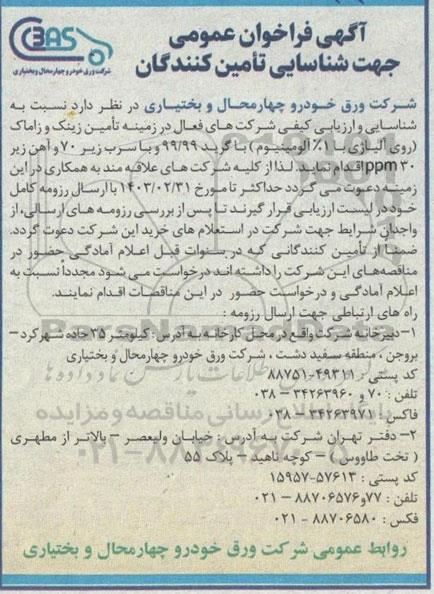 آگهی فراخوان عمومی
جهت شناسایی تأمین کنندگان
3BAS
شرکت ورق خودرو چهارمحال و بختیاری
شرکت ورق خودرو چهارمحال و بختیاری در نظر دارد نسبت به
شناسایی و ارزیابی کیفی شرکت های فعال در زمینه تأمین زینک و زاماک
(روی آلیاژی ۱۰٪ آلومینیوم) با گرید ۹۹/۹۹ و با سرب زیر ۷۰ و آهن زیر
۳۰ ppm اقدام نماید. لذا از کلیه شرکت های علاقه مند به همکاری در این
زمینه دعوت می گردد حداکثر تا مورخ ۱۴۰۳/۰۲/۳۱ با ارسال رزومه کامل
خود در لیست ارزیابی قرار گیرند تا پس از بررسی رزومه های ارسالی، از
واجدان شرایط جهت شرکت در استعلام های خرید این شرکت دعوت گردد.
ضمناً از تأمین کنندگانی که در سنوات قبل اعلام آمادگی حضور در
مناقصه‌های این شرکت را داشته اند درخواست می شود مجدداً نسبت به
اعلام آمادگی و درخواست حضور در این مناقصات اقدام نمایند.
راه های ارتباطی جهت ارسال رزومه :
۱- دبیرخانه شرکت واقع در محل کارخانه به آدرس : کیلومتر ۳۵ جاده شهرکرد –
بروجن ، منطقه سفید دشت ، شرکت ورق خودرو چهارمحال و بختیاری
کد پستی : ۴۹۳۱۱-۸۸۷۵۱
تلفن : ۷۰ و ۳۴۲۶۳۹۶۰ – ۰۳۸
فاکس : ۳۴۲۶۳۹۷۱ – ۰۳۸
۲- دفتر تهران شرکت به آدرس : خیابان ولیعصر – بالاتر از مطهری
( تخت طاووس ) – کوچه ناهید – پلاک ۵۵
کد پستی : ۵۷۶۱۳-۱۵۹۵۷
تلفن : ۷۷ و ۸۸۷۰۶۵۷۶ – ۰۲۱
فکس : ۸۸۷۰۶۵۸۰ - ۰۲۱
روابط عمومی شرکت ورق خودرو چهارمحال و بختیاری